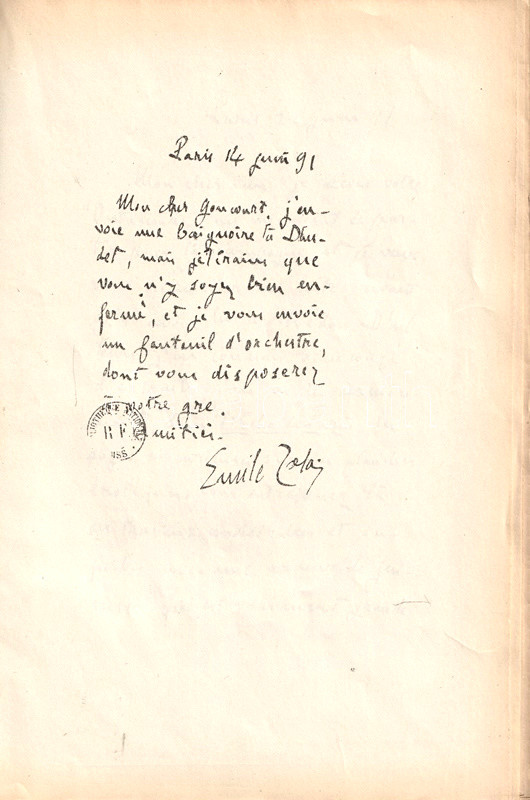 Paris 14 juin 91
Mon cher Goncourt, j'en-
voie une baignoire à Dau-
det, mais je crains que
vous n'y soyez bien en-
fermé, et je vous envoie
un fauteuil d'orchestre,
dont vous disposerez
à votre gré.
Amitiés.
Emile Zola
R F